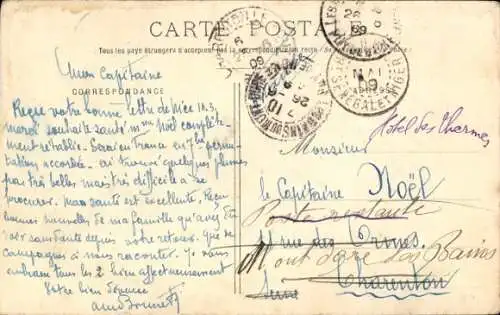 CARTE POSTALE
Tous les pays étrangers n'acceptent pas la correspondance
CORRESPONDANCE
Mon Capitaine
Reçu votre bonne lettre de Nice
merci souhaits santé Mme Noël complète-
ment rétablie. Serai en France en 7bre permu-
tation accordée. ai trouvé quelques plumes
pas très belles mais très difficile à se
procurer. Ma santé est excellente. Reçu
bonnes nouvelles de ma famille qu'avez dû
voir sans doute depuis votre retour. Que de
campagnes à nous raconter. Je vous
embrasse tous les 2 bien affectueusement
Votre bien dévoué
SÉNÉGAL ET NIGER
Hôtel des Thermes
Monsieur
le Capitaine Noël
Poste restante
rue des Ormes
Mont Dore les Bains
Charenton
Seine